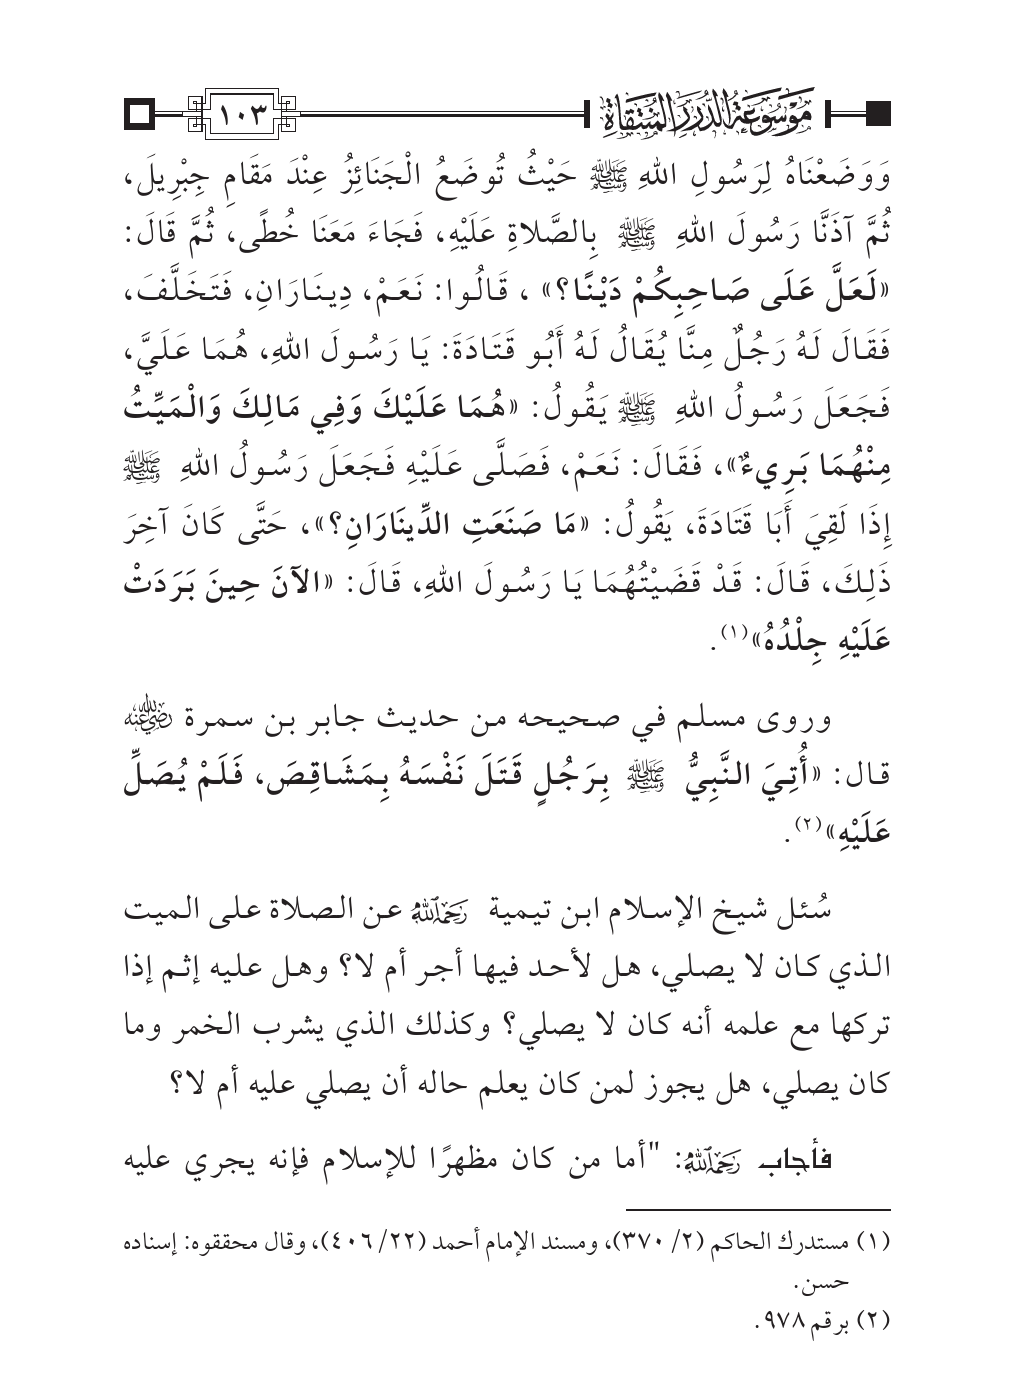 موسوعة الدرر المنتقاة
١٠٣
وَوَضَعْنَاهُ لِرَسُولِ اللهِ ﷺ حَيْثُ تُوضَعُ الْجَنَائِزُ عِنْدَ مَقَامِ جِبْرِيلَ،
ثُمَّ آذَنَّا رَسُولَ اللهِ ﷺ بِالصَّلاةِ عَلَيْهِ، فَجَاءَ مَعَنَا خُطًى، ثُمَّ قَالَ:
«لَعَلَّ عَلَى صَاحِبِكُمْ دَيْنًا؟» ، قَالُوا: نَعَمْ، دِينَارَانِ، فَتَخَلَّفَ،
فَقَالَ لَهُ رَجُلٌ مِنَّا يُقَالُ لَهُ أَبُو قَتَادَةَ: يَا رَسُولَ اللهِ، هُمَا عَلَيَّ،
فَجَعَلَ رَسُولُ اللهِ ﷺ يَقُولُ: «هُمَا عَلَيْكَ وَفِي مَالِكَ وَالْمَيِّتُ
مِنْهُمَا بَرِيءٌ»، فَقَالَ: نَعَمْ، فَصَلَّى عَلَيْهِ فَجَعَلَ رَسُولُ اللهِ ﷺ
إِذَا لَقِيَ أَبَا قَتَادَةَ، يَقُولُ: «مَا صَنَعَتِ الدِّينَارَانِ؟»، حَتَّى كَانَ آخِرَ
ذَلِكَ، قَالَ: قَدْ قَضَيْتُهُمَا يَا رَسُولَ اللهِ، قَالَ: «الآنَ حِينَ بَرَدَتْ
عَلَيْهِ جِلْدُهُ»(١).
وروى مسلم في صحيحه من حديث جابر بن سمرة رضي الله عنه
قال: «أُتِيَ النَّبِيُّ ﷺ بِرَجُلٍ قَتَلَ نَفْسَهُ بِمَشَاقِصَ، فَلَمْ يُصَلِّ
عَلَيْهِ»(٢).
سُئل شيخ الإسلام ابن تيمية رحمه الله عن الصلاة على الميت
الذي كان لا يصلي، هل لأحد فيها أجر أم لا؟ وهل عليه إثم إذا
تركها مع علمه أنه كان لا يصلي؟ وكذلك الذي يشرب الخمر وما
كان يصلي، هل يجوز لمن كان يعلم حاله أن يصلي عليه أم لا؟
فأجاب رحمه الله: "أما من كان مظهرًا للإسلام فإنه يجري عليه
(١) مستدرك الحاكم (٢/ ٣٧٠)، ومسند الإمام أحمد (٢٢/ ٤٠٦)، وقال محققوه: إسناده
حسن.
(٢) برقم ٩٧٨.